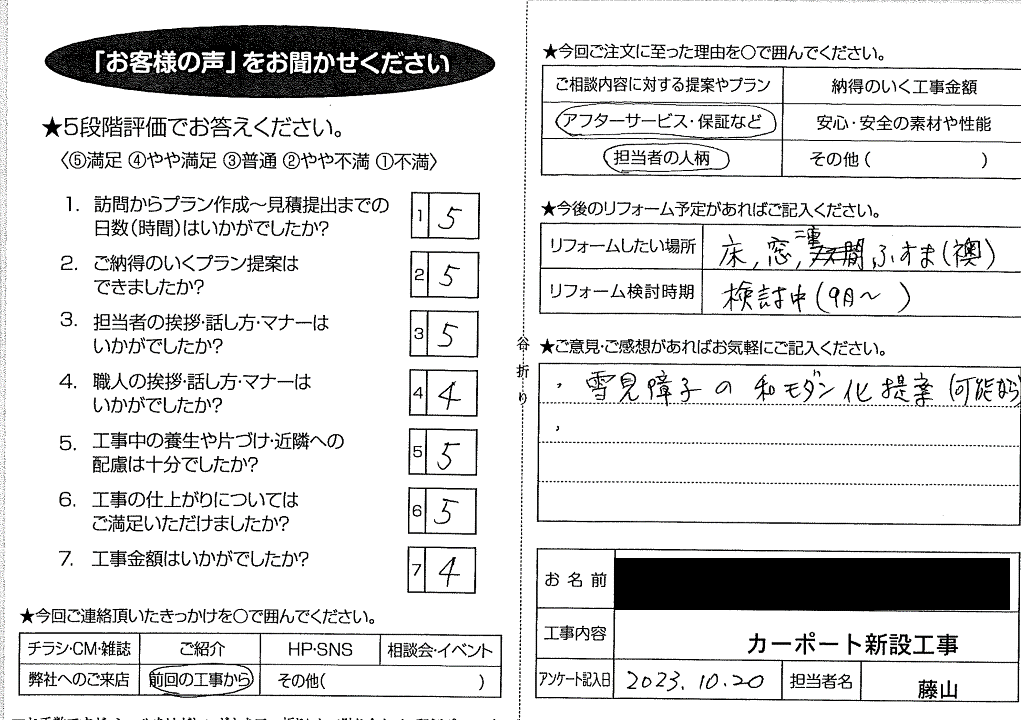 「お客様の声」をお聞かせください
★5段階評価でお答えください。
〈⑤満足 ④やや満足 ③普通 ②やや不満 ①不満〉
1. 訪問からプラン作成～見積提出までの
日数(時間)はいかがでしたか?
1 5
2. ご納得のいくプラン提案は
できましたか?
2 5
3. 担当者の挨拶・話し方・マナーは
いかがでしたか?
3 5
4. 職人の挨拶・話し方・マナーは
いかがでしたか?
4 4
5. 工事中の養生や片づけ・近隣への
配慮は十分でしたか?
5 5
6. 工事の仕上がりについては
ご満足いただけましたか?
6 5
7. 工事金額はいかがでしたか?
7 4
★今回ご連絡頂いたきっかけを○で囲んでください。
チラシ・CM・雑誌 ご紹介 HP・SNS 相談会・イベント
弊社へのご来店 前回の工事から その他( )
谷折り
★今回ご注文に至った理由を○で囲んでください。
ご相談内容に対する提案やプラン 納得のいく工事金額
アフターサービス・保証など 安心・安全の素材や性能
担当者の人柄 その他( )
★今後のリフォーム予定があればご記入ください。
リフォームしたい場所 床, 窓, 二重 ふすま(襖)
リフォーム検討時期 検討中(9月～ )
★ご意見・ご感想があればお気軽にご記入ください。
・ 雪見障子の和モダン化提案(可能なら
・
お名前
工事内容 カーポート新設工事
アンケート記入日 2023.10.20 担当者名 藤山